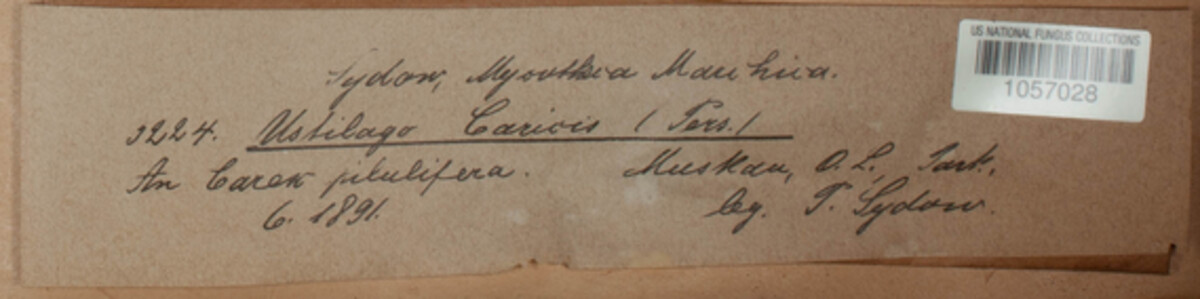 US NATIONAL FUNGUS COLLECTIONS
1057028
Sydow, Mycotheca Marchica.
3224. Ustilago Caricis (Pers.)
An Carex pilulifera. Muskau, O. L., Park.
6. 1891. leg. P. Sydow.